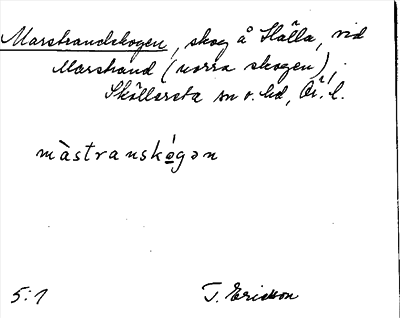 Marstrandskogen, skog å Hälla, vid
Marstrand (norra skogen),
Sköllersta sn o. hd, Ör. l.
màstranskógən
5:1 T. Ericsson